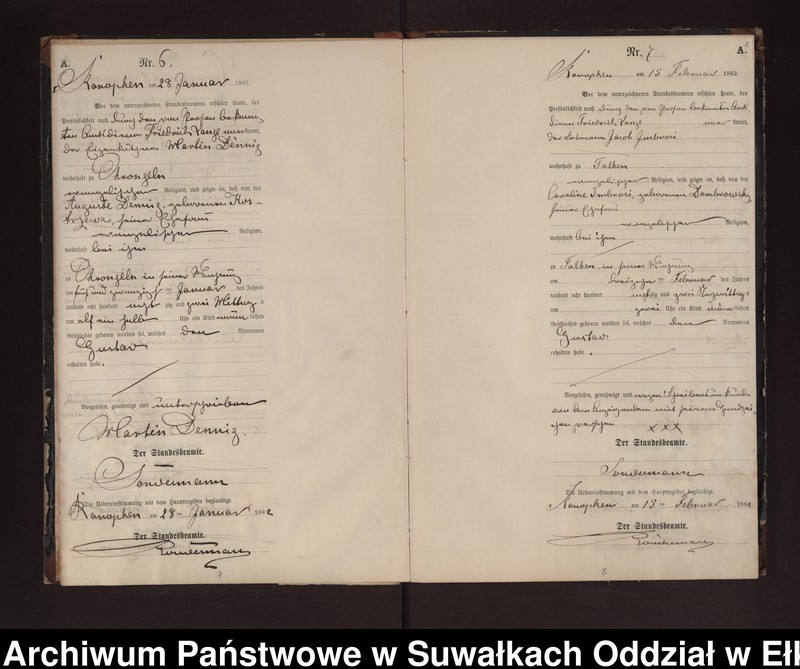 A.
Nr. 6.
Konopken am 28 Januar 1882.
Vor dem unterzeichneten Standesbeamten erschien heute, der
Persönlichkeit nach durch den von Person bekann-
ten Amtsdiener Friedrich Lanze anerkannt,
der Eigenkäthner Martin Dennig
wohnhaft zu Chronzeln
evangelischer Religion, und zeigte an, daß von der
Auguste Dennig, geborenen Kos-
trzewa, seiner Ehefrau
evangelischer Religion,
wohnhaft bei ihm
zu Chronzeln in seiner Wohnung
am fünf und zwanzigsten Januar des Jahres
tausend acht hundert achtzig und zwei Mittags
um elf ein halb Uhr ein Kind männlichen
Geschlechts geboren worden sei, welches den Vornamen
Gustav
erhalten habe.
Vorgelesen, genehmigt und unterschrieben
Martin Dennig.
Der Standesbeamte.
Sondermann
Die Uebereinstimmung mit dem Hauptregister beglaubigt.
Konopken am 28ten Januar 1882
Der Standesbeamte.
Sondermann
7
Nr. 7
A.
6
Konopken am 15 Februar 1882.
Vor dem unterzeichneten Standesbeamten erschien heute, der
Persönlichkeit nach durch den von Person bekannten Amts-
diener Friedrich Lanze anerkannt,
der Losmann Jacob Imbrosi
wohnhaft zu Talken
evangelischer Religion, und zeigte an, daß von der
Caroline Imbrosi, geborenen Dombrowsky
seiner Ehefrau
evangelischer Religion,
wohnhaft bei ihm
zu Talken, in seiner Wohnung
am dreizehnten Februar des Jahres
tausend acht hundert achtzig und zwei Nachmittags
um zwei Uhr ein Kind männlichen
Geschlechts geboren worden sei, welches den Vornamen
Gustav
erhalten habe.
Vorgelesen, genehmigt und wegen Schreibensunkunde
von dem Anzeigenden mit seinem Handzei-
chen versehen
XXX
Der Standesbeamte.
Sondermann
Die Uebereinstimmung mit dem Hauptregister beglaubigt.
Konopken am 15ten Februar 1882
Der Standesbeamte.
Sondermann
8
Archiwum Państwowe w Suwałkach Oddział w Ełk